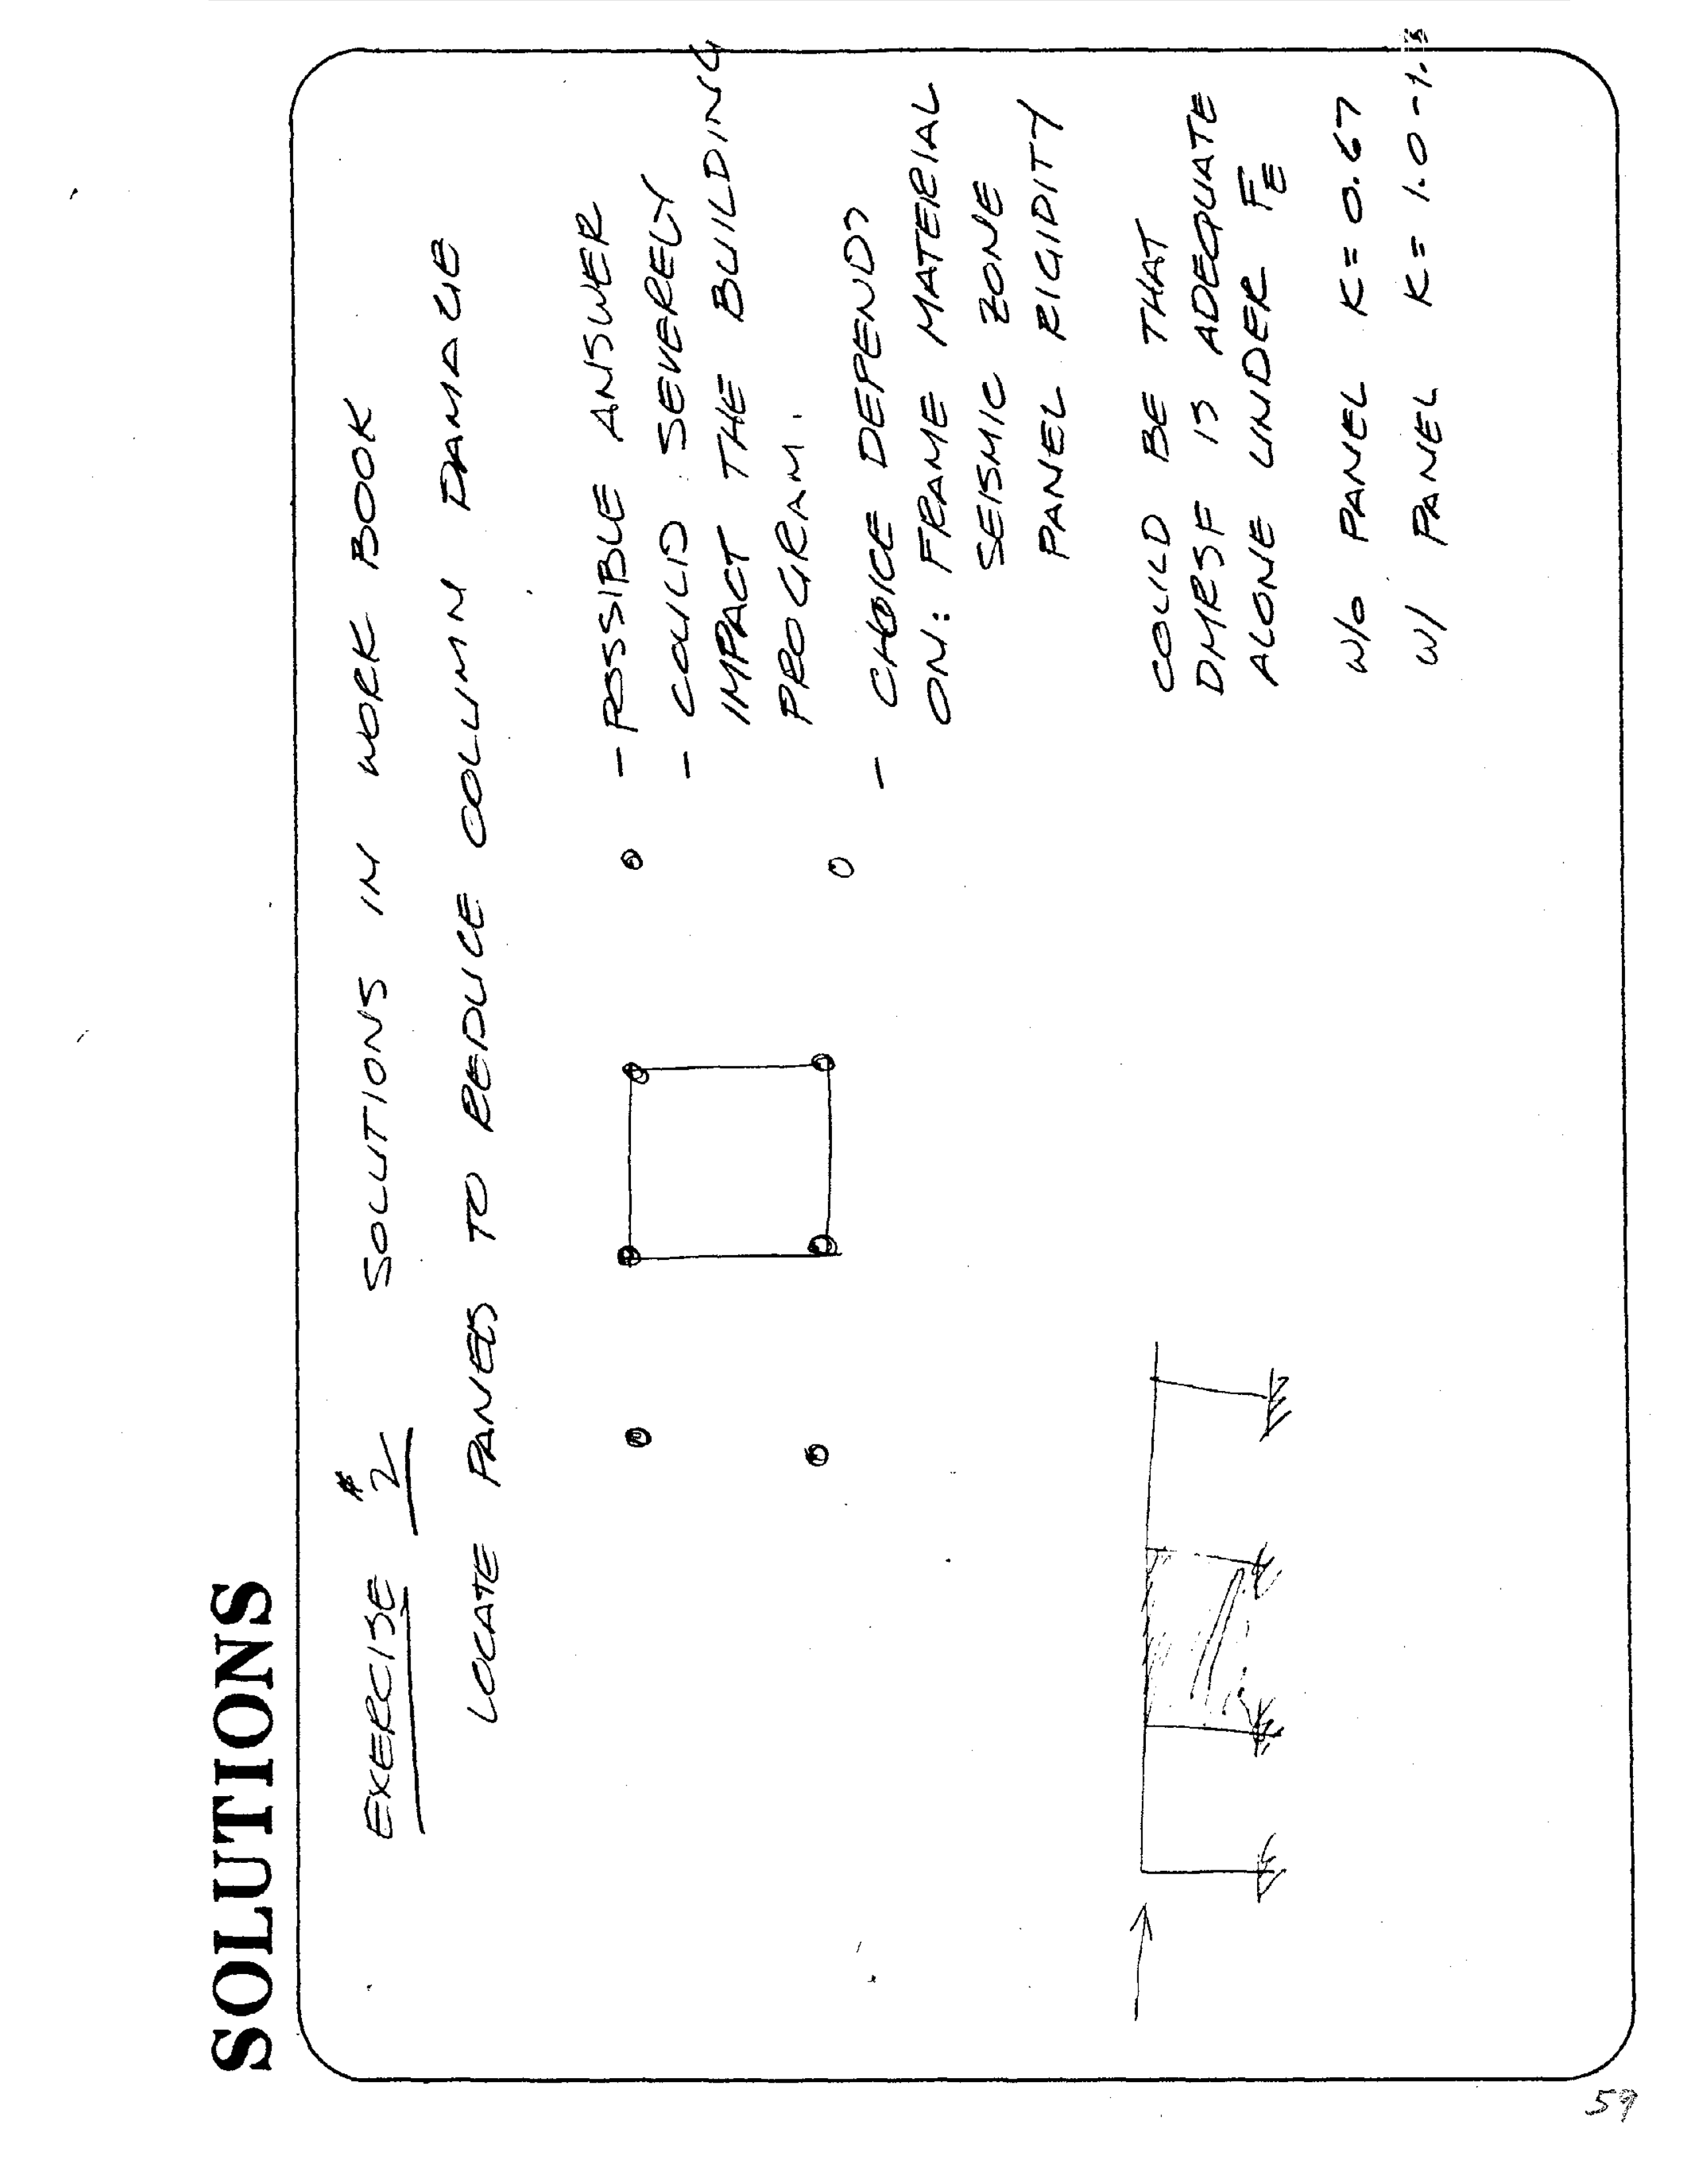 SOLUTIONS
EXERCISE #2 SOLUTIONS IN WORK BOOK
LOCATE PANELS TO REDUCE COLUMN DAMAGE
- POSSIBLE ANSWER
- COULD SEVERELY
IMPACT THE BUILDING
PROGRAM.
- CHOICE DEPENDS
ON: FRAME MATERIAL
SEISMIC ZONE
PANEL RIGIDITY
COULD BE THAT
DMRSF IS ADEQUATE
ALONE UNDER FE
W/O PANEL K = 0.67
W/ PANEL K = 1.0-1.3
59